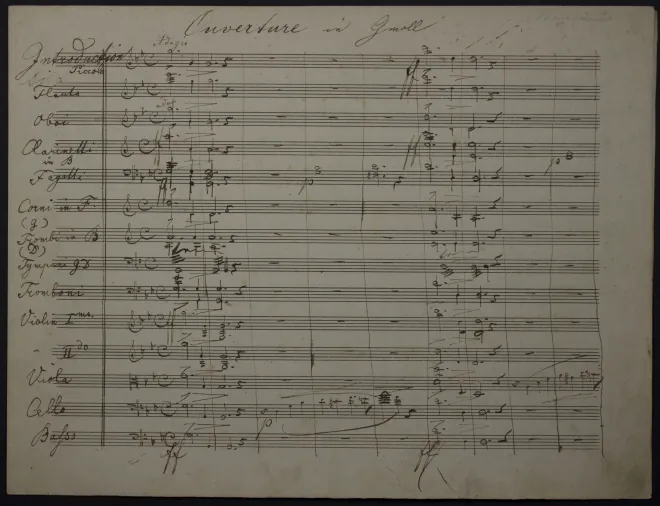 Ouverture in Gmoll
Adagio
Introduction
Piccolo
Flauto
Oboi
Clarinetti
in B
Fagotti
Corni in F.
Trombi in B
(D)
Tympani G D
Tromboni
Violin Imo
" IIdo
Viola
Cello
Basso
ff
ff
ff
ff
p
p
p
ff
ff